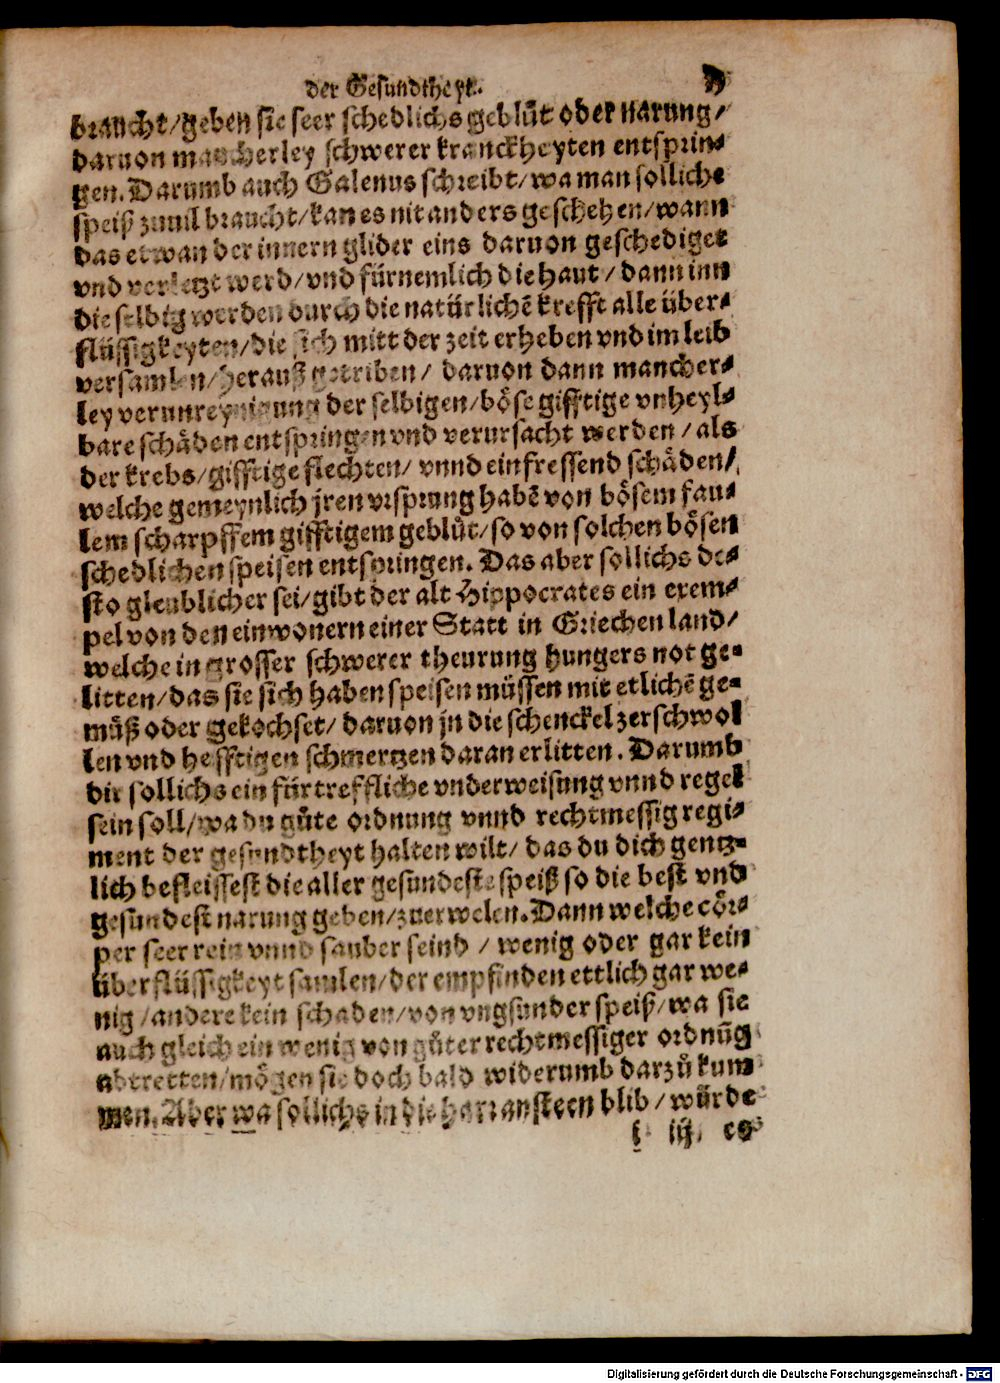 der Gesundtheyt.
braucht/geben sie seer schedlichs geblůt oder narung/
daruon mancherley schwerer kranckheyten entsprin-
gen. Darumb auch Galenus schreibt/wa man solliche
speiß zuuil braucht/kan es nit anders geschehen/wann
das etwan der innern glider eins daruon geschediget
vnd verletzt werd/vnd fürnemlich die haut/dann inn
die selbig werden durch die natürlichẽ krefft alle über-
flüssigkeyten/die sich mitt der zeit erheben vnd im leib
versamlen/herauß getriben/daruon dann mancher-
ley verunreynigung der selbigen/böse gifftige vnheyl-
bare schäden entspringen vnd verursacht werden/als
der krebs/gifftige flechten/vnnd einfressend schäden/
welche gemeynlich jren vrsprung habẽ von bösem fau-
lem scharpffem gifftigem geblůt/so von solchen bösen
schedlichen speisen entspringen. Das aber sollichs de-
sto gleublicher sei/gibt der alt Hippocrates ein exem-
pel von den einwonern einer Statt in Griechen land/
welche in grosser schwerer theurung hungers not ge-
litten/das sie sich haben speisen müssen mit etlichẽ ge-
můß oder gekochset/daruon jn die schenckel zerschwol
len vnd hefftigen schmertzen daran erlitten. Darumb
dir sollichs ein fürtreffliche vnderweisung vnnd regel
sein soll/wa du gůte ordnung vnnd rechtmessig regi-
ment der gesundtheyt halten wilt/das du dich gentz-
lich befleissest die aller gesundeste speiß so die best vnd
gesundest narung geben/zuerwelen. Dann welche cör-
per seer rein vnnd sauber seind/wenig oder gar kein
überflüssigkeyt samlen/der empfinden ettlich gar we-
nig/andere kein schaden/von vngsunder speiß/wa sie
auch gleich ein wenig von gůter rechtmessiger ordnũg
abtretten/mögen sie doch bald widerumb darzů kum
men. Aber wa sollichs in die harr ansteen blib/würde
f iij es
Digitalisierung gefördert durch die Deutsche Forschungsgemeinschaft - DFG